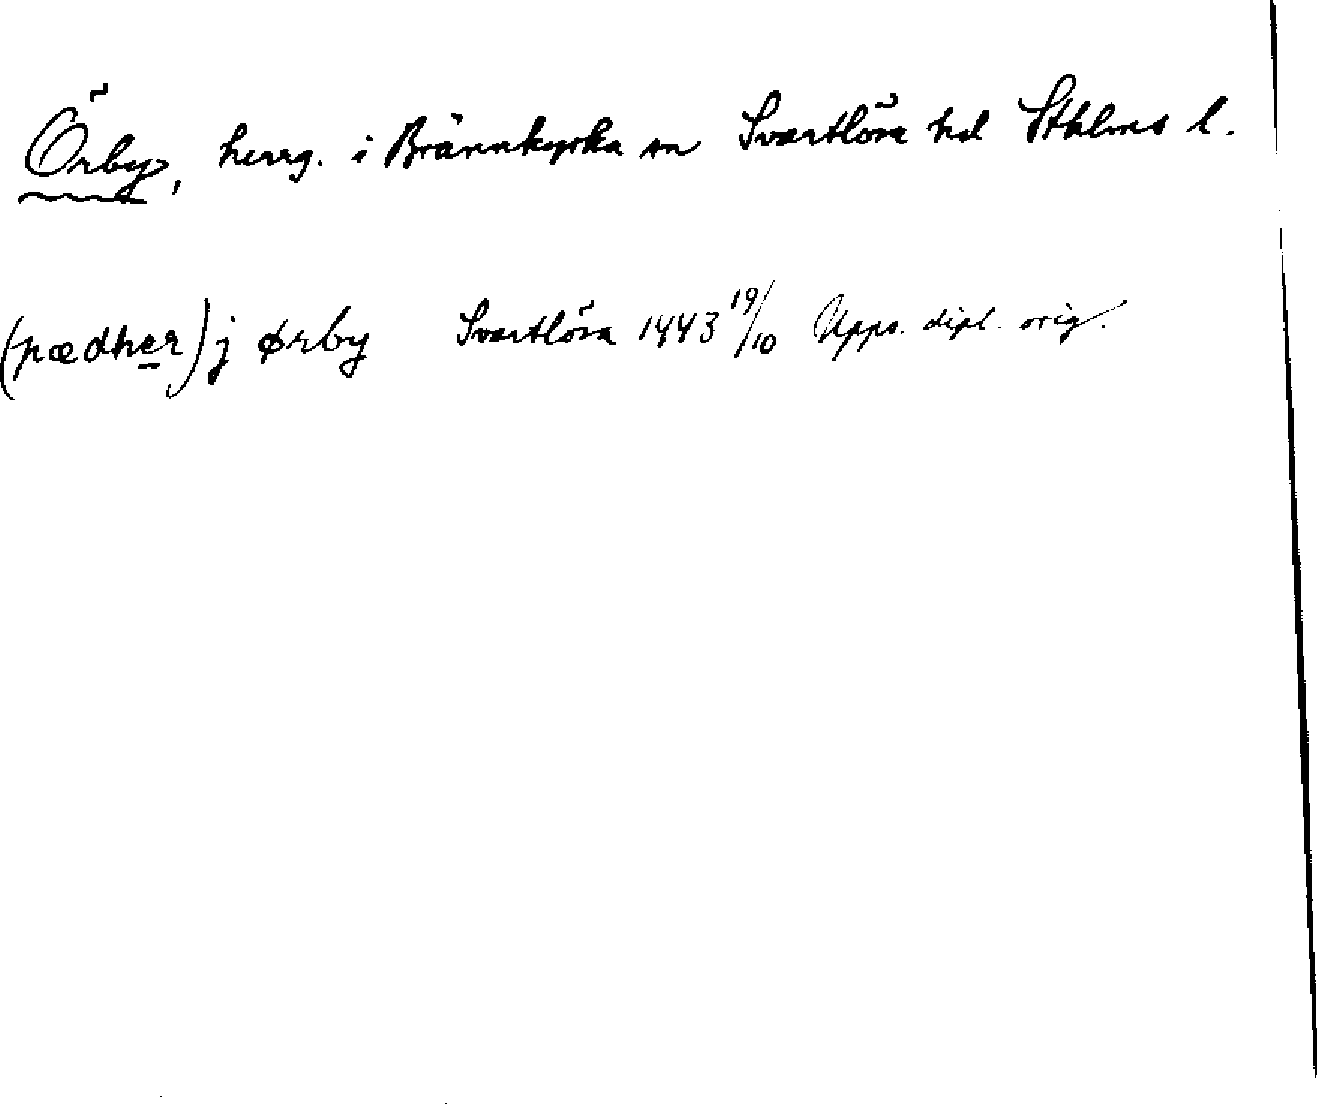 Örby, herrg. i Brännkyrka sn Svartlösa hd Sthlms l.
(pædher) j ørby Svartlösa 1443 19/10 Upps. dipl. orig.